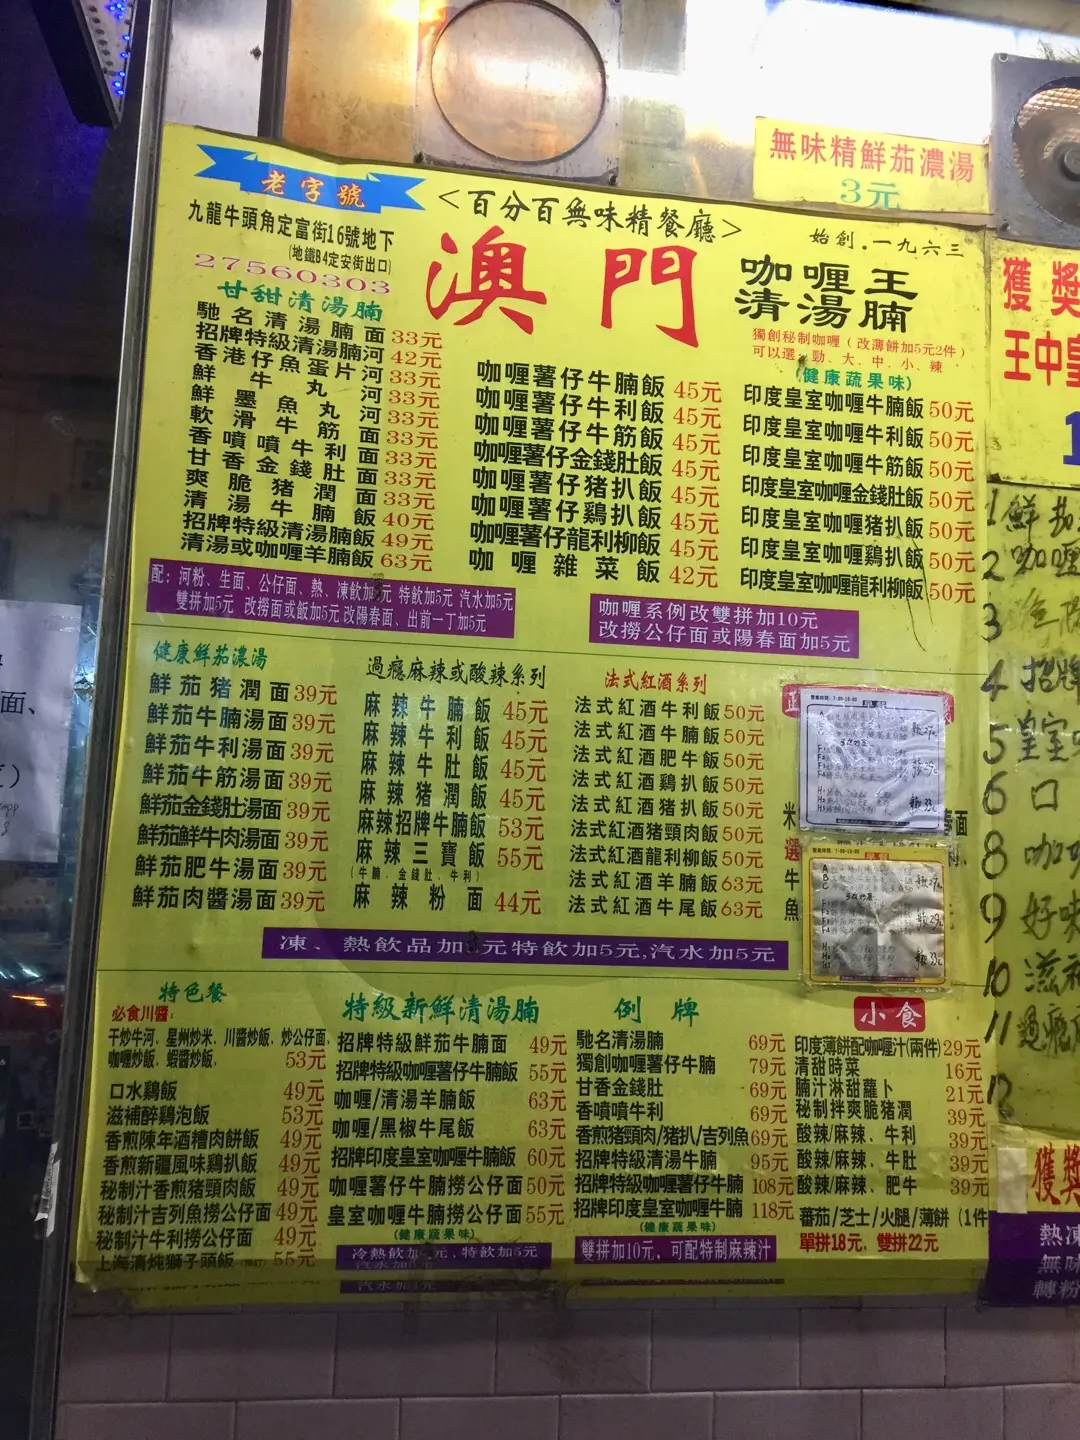 無味精鮮茄濃湯
3元
老字號
<百分百無味精餐廳>
九龍牛頭角定富街16號地下
(地鐵B4定安街出口)
27560303
始創.一九六三
澳門
咖喱王
清湯腩
獨創秘制咖喱（改薄餅加5元2件）
可以選：勁、大、中、小、辣
甘甜清湯腩
馳名清湯腩面33元
招牌特級清湯腩河42元
香港仔魚蛋片河33元
鮮牛丸河33元
鮮墨魚丸河33元
軟滑牛筋面33元
香噴噴牛利面33元
甘香金錢肚面33元
爽脆豬潤面33元
清湯牛腩飯40元
招牌特級清湯腩飯49元
清湯或咖喱羊腩飯63元
咖喱薯仔牛腩飯45元
咖喱薯仔牛利飯45元
咖喱薯仔牛筋飯45元
咖喱薯仔金錢肚飯45元
咖喱薯仔豬扒飯45元
咖喱薯仔鷄扒飯45元
咖喱薯仔龍利柳飯45元
咖喱雜菜飯42元
(健康蔬果味)
印度皇室咖喱牛腩飯50元
印度皇室咖喱牛利飯50元
印度皇室咖喱牛筋飯50元
印度皇室咖喱金錢肚飯50元
印度皇室咖喱豬扒飯50元
印度皇室咖喱鷄扒飯50元
印度皇室咖喱龍利柳飯50元
配：河粉、生面、公仔面、熱、凍飲加 元 特飲加5元 汽水加5元
雙拼加5元 改撈面或飯加5元 改陽春面、出前一丁加5元
咖喱系例改雙拼加10元
改撈公仔面或陽春面加5元
健康鮮茄濃湯
鮮茄豬潤面39元
鮮茄牛腩湯面39元
鮮茄牛利湯面39元
鮮茄牛筋湯面39元
鮮茄金錢肚湯面39元
鮮茄鮮牛肉湯面39元
鮮茄肥牛湯面39元
鮮茄肉醬湯面39元
過癮麻辣或酸辣系列
麻辣牛腩飯45元
麻辣牛利飯45元
麻辣牛肚飯45元
麻辣豬潤飯45元
麻辣招牌牛腩飯53元
麻辣三寶飯55元
(牛腩、金錢肚、牛利)
麻辣粉面44元
法式紅酒系列
法式紅酒牛利飯50元
法式紅酒牛腩飯50元
法式紅酒肥牛飯50元
法式紅酒鷄扒飯50元
法式紅酒豬扒飯50元
法式紅酒豬頸肉飯50元
法式紅酒龍利柳飯50元
法式紅酒羊腩飯63元
法式紅酒牛尾飯63元
米
選
牛
魚
凍、熱飲品加 元特飲加5元,汽水加5元
特色餐
必食川醬：
干炒牛河、星州炒米、川醬炒飯、炒公仔面、
咖喱炒飯、蝦醬炒飯、53元
口水鷄飯49元
滋補醉鷄泡飯53元
香煎陳年酒糟肉餅飯49元
香煎新疆風味鷄扒飯49元
秘制汁香煎豬頸肉飯49元
秘制汁吉列魚撈公仔面49元
秘制汁牛利撈公仔面49元
上海清炖獅子頭飯55元
特級新鮮清湯腩
招牌特級鮮茄牛腩面49元
招牌特級咖喱薯仔牛腩飯55元
咖喱/清湯羊腩飯63元
咖喱/黑椒牛尾飯63元
招牌印度皇室咖喱牛腩飯60元
咖喱薯仔牛腩撈公仔面50元
皇室咖喱牛腩撈公仔面55元
(健康蔬果味)
冷熱飲加 元、特飲加5元
例牌
馳名清湯腩69元
獨創咖喱薯仔牛腩79元
甘香金錢肚69元
香噴噴牛利69元
香煎豬頸肉/豬扒/吉列魚69元
招牌特級清湯牛腩95元
招牌特級咖喱薯仔牛腩108元
招牌印度皇室咖喱牛腩118元
(健康蔬果味)
雙拼加10元，可配特制麻辣汁
小食
印度薄餅配咖喱汁(兩件)29元
清甜時菜16元
腩汁淋甜蘿卜21元
秘制拌爽脆豬潤39元
酸辣/麻辣、牛利39元
酸辣/麻辣、牛肚39元
酸辣/麻辣、肥牛39元
蕃茄/芝士/火腿/薄餅(1件
單拼18元，雙拼22元
獲獎
王中皇
1 鮮茄
2 咖喱
3
4 招牌
5 皇室
6 口
8 咖
9 好味
10 滋補
11 過癮
12
獲獎
熱凍
無味
轉粉
面、